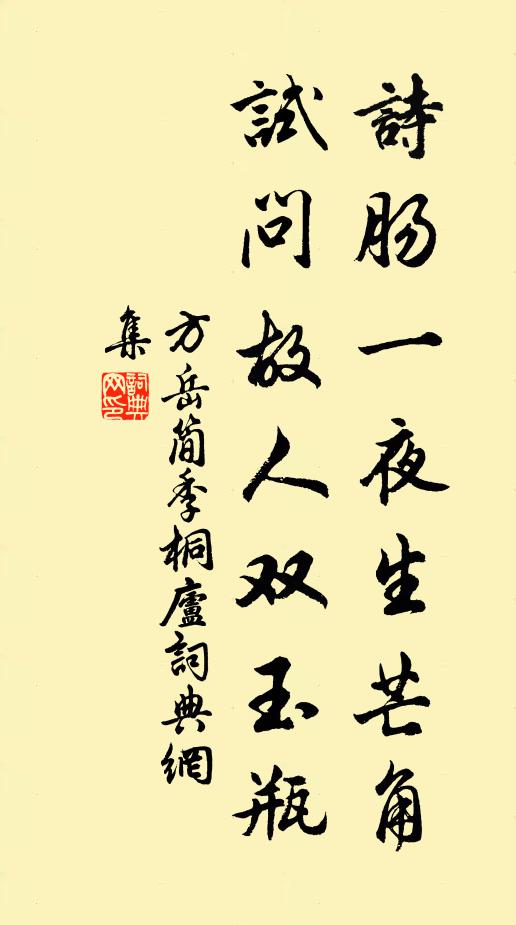 詩肠一夜生芒角
試问故人双玉瓶
方岳简季桐廬詞典網
集
詞典
网印